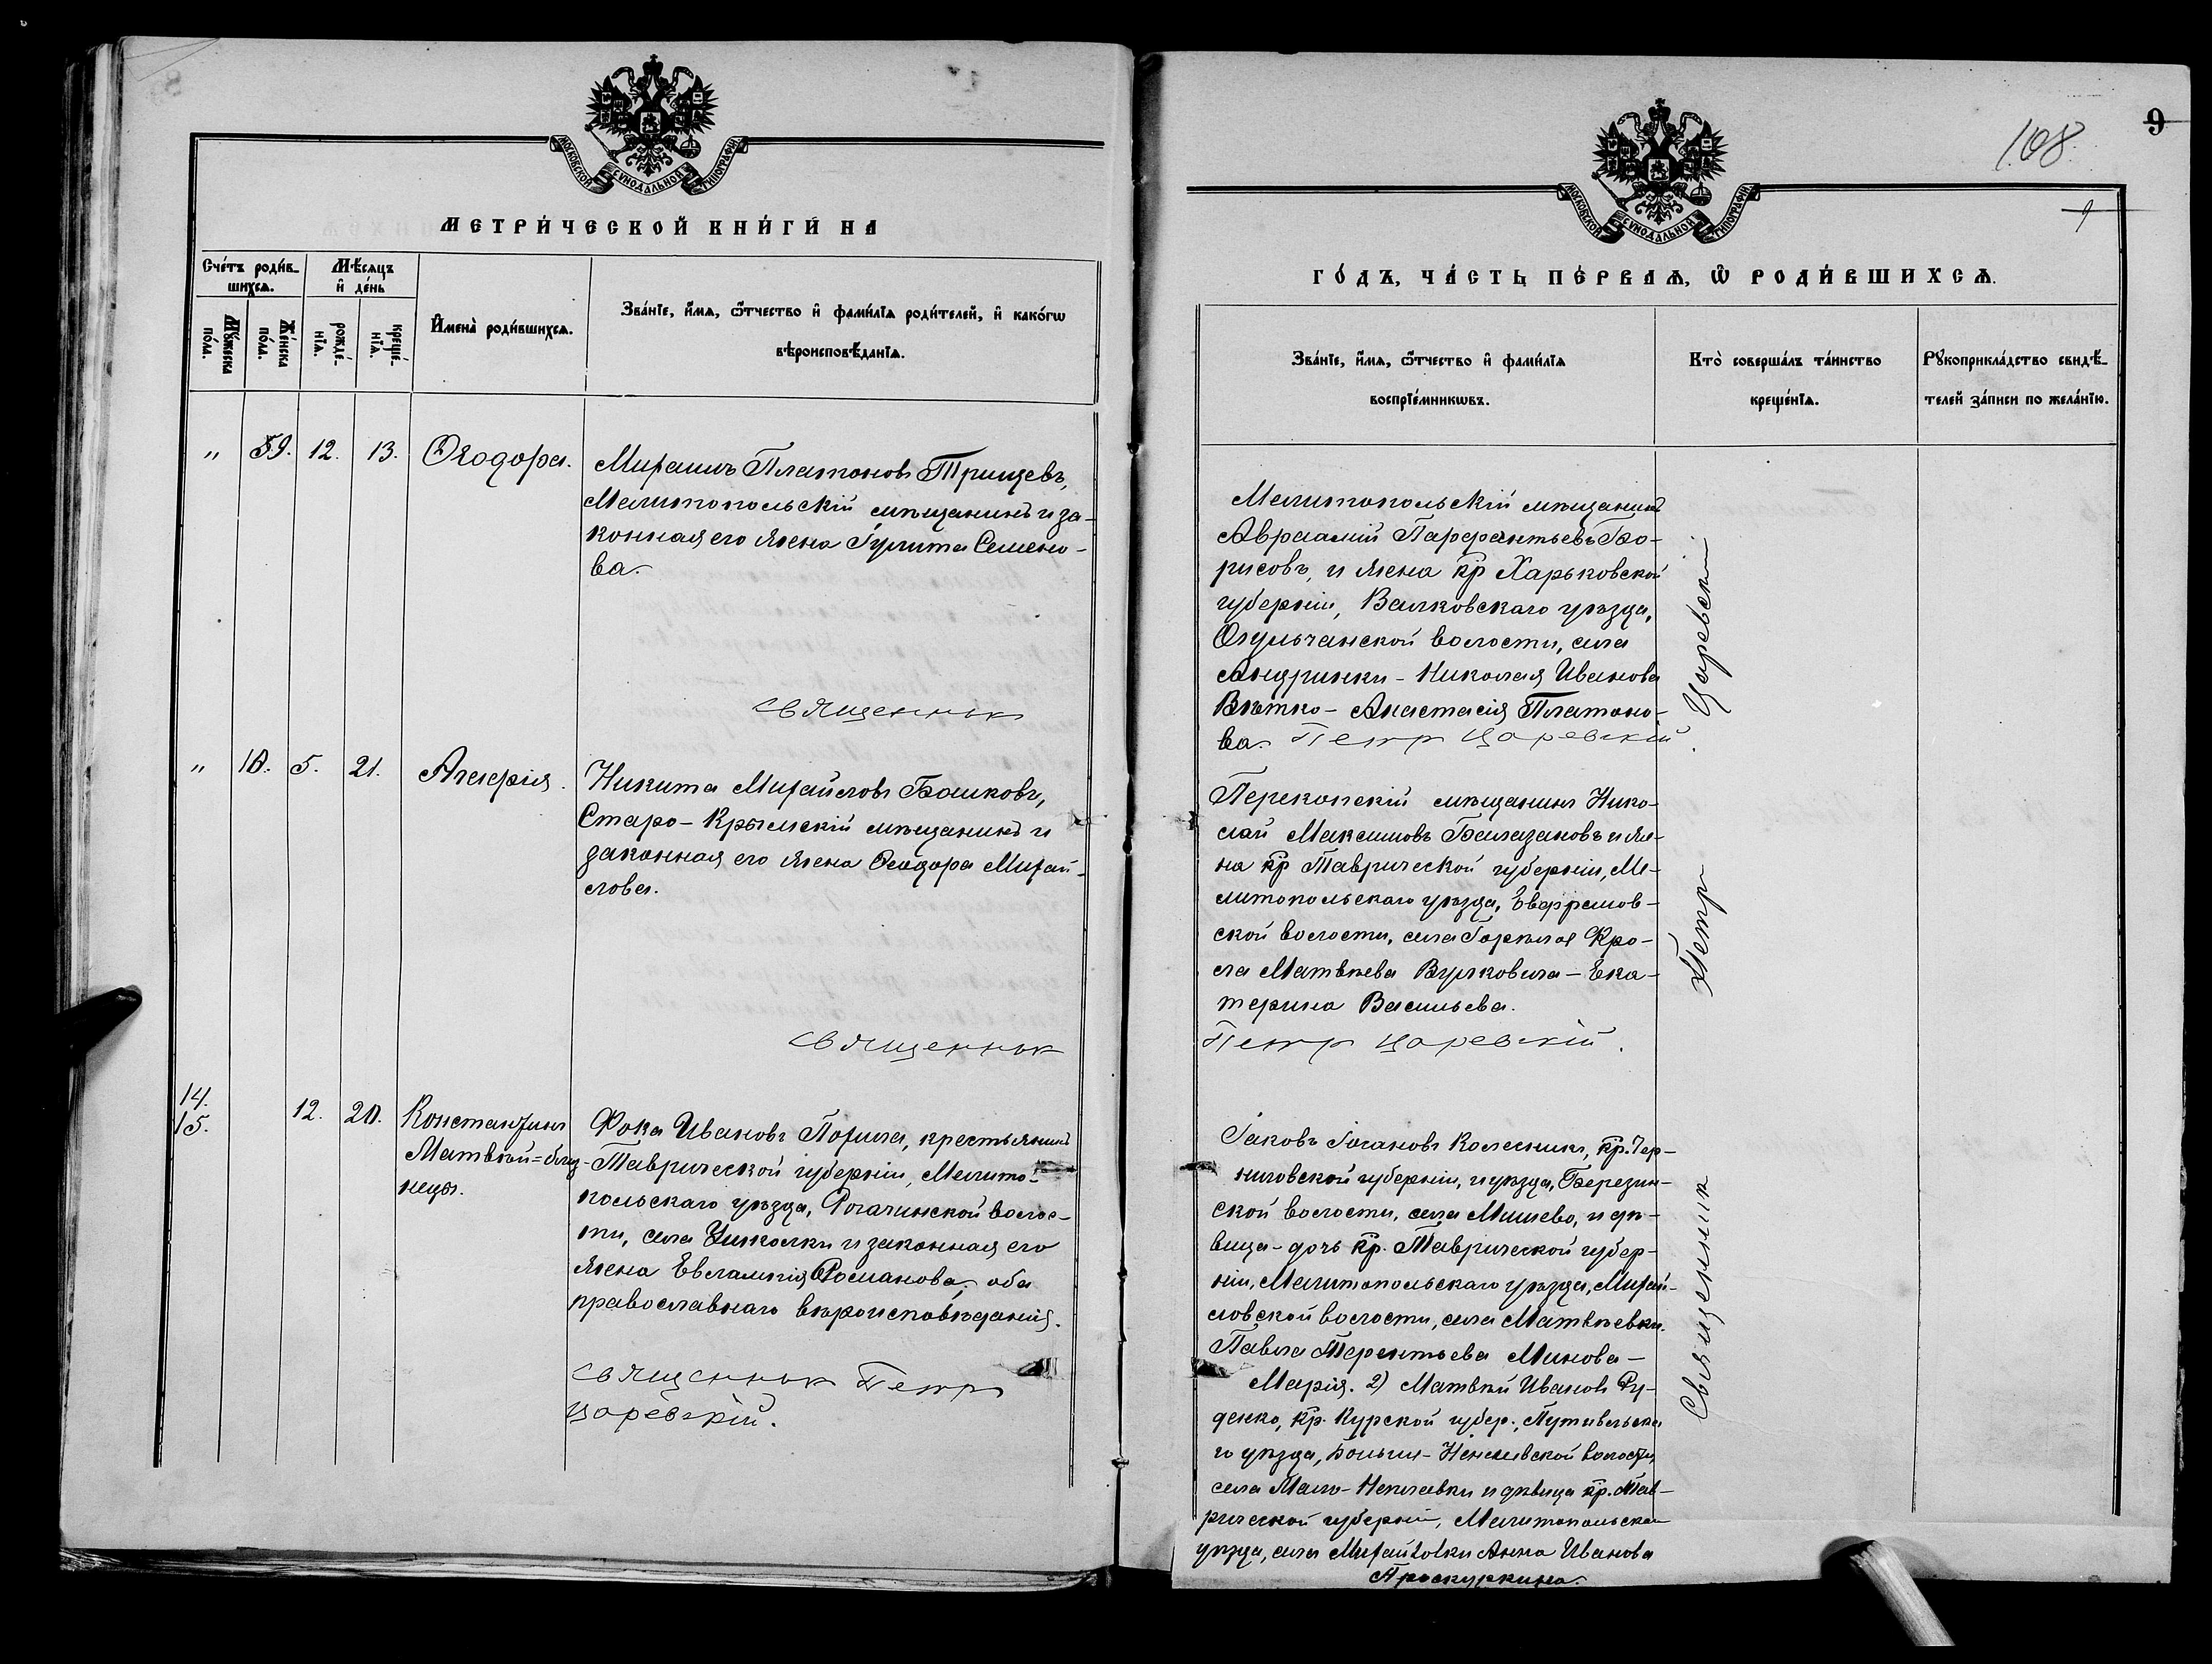 МОСКОВСКОЙ СѴНОДАЛЬНОЙ ТИПОГРАФІИ
МЕТРИ́ЧЕСКОЙ КНИ́ГИ НА
Сче́тъ роди́в-
шихсѧ.
Мѣ́сѧцъ
и҆ де́нь
И҆мена̀ роди́вшихсѧ.
Зва́нїе, и҆́мѧ, ѻ҆́тчество и҆ фами́лїѧ роди́телей, и҆ како́гѡ
вѣроисповѣ́данїѧ.
Мꙋ́жеска
по́ла.
Же́нска
по́ла.
рожде́-
нїѧ.
креще́-
нїѧ.
" 9. 12. 13. Ѳеодора.
Платоновъ Трищевъ,
Мелитопольскій мѣщанинъ и за-
конная его жена Іулита Семено-
ва.
Священникъ
" 10. 5. 21. Агнерія.
Никита Михайловъ Башковъ,
Старо-Крымскій мѣщанинъ и
законная его жена Ѳеодора Михай-
лова.
Священникъ
14.
15.
12. 20. Константинъ
Матвѣй=близ-
нецы.
Фока Ивановъ Похила, крестьянинъ
Таврической губерніи, Мелито-
польскаго уѣзда, Рогачинской волос-
ти, села Ушкалки и законная его
жена Евлампія Романова, оба
православнаго вѣроисповѣданія.
Священникъ Петръ
Царевскій.
108.
9
МОСКОВСКОЙ СѴНОДАЛЬНОЙ ТИПОГРАФІИ
ГО́ДЪ, ЧА́СТЬ ПЕ́РВАѦ, Ѡ҆ РОДИ́ВШИХСѦ.
Зва́нїе, и҆́мѧ, ѻ҆́тчество и҆ фами́лїѧ
воспрїе́мникѡвъ.
Кто̀ соверша́лъ та́инство
креще́нїѧ.
Рꙋкоприкла́дство свидѣ́-
телей за́писи по жела́нїю.
Мелитопольскій мѣщанинъ
Авраамій Парфентьевъ Бо-
рисовъ, и жена кр. Харьковской
губерніи, Валковскаго уѣзда,
Огульчанской волости, села
Андринки - Николая Иванова
Вѣтко - Анастасія Платоно-
ва. Петръ Царевскій
Перекопскій мѣщанинъ Нико-
лай Максимовъ Балазановъ и же-
на кр. Таврической губерніи, Ме-
литопольскаго уѣзда, Ефремов-
ской волости, села Горѣлое Кро-
ла Матвѣева Вулковича - Ека-
терина Васильева.
Петръ Царевскій.
Іаковъ Іоановъ Колесникъ, кр. Чер-
ниговской губерніи, и уѣзда, Березин-
ской волости, села Мишево, и дѣ-
вица - дочь кр. Таврической губер-
ніи, Мелитопольскаго уѣзда, Михай-
ловской волости, села Матвѣевки
Павла Терентьева Минова -
Марія. 2) Матвѣй Ивановъ Ру-
денко, кр. Курской губер., Путивльска
го уѣзда, волости,
села и дѣвица кр. Тав-
рической губерніи, Мелитопольскаго
уѣзда, села Михайловки Анна Иванова
Проскуркина.
Священникъ Петръ Царевскій